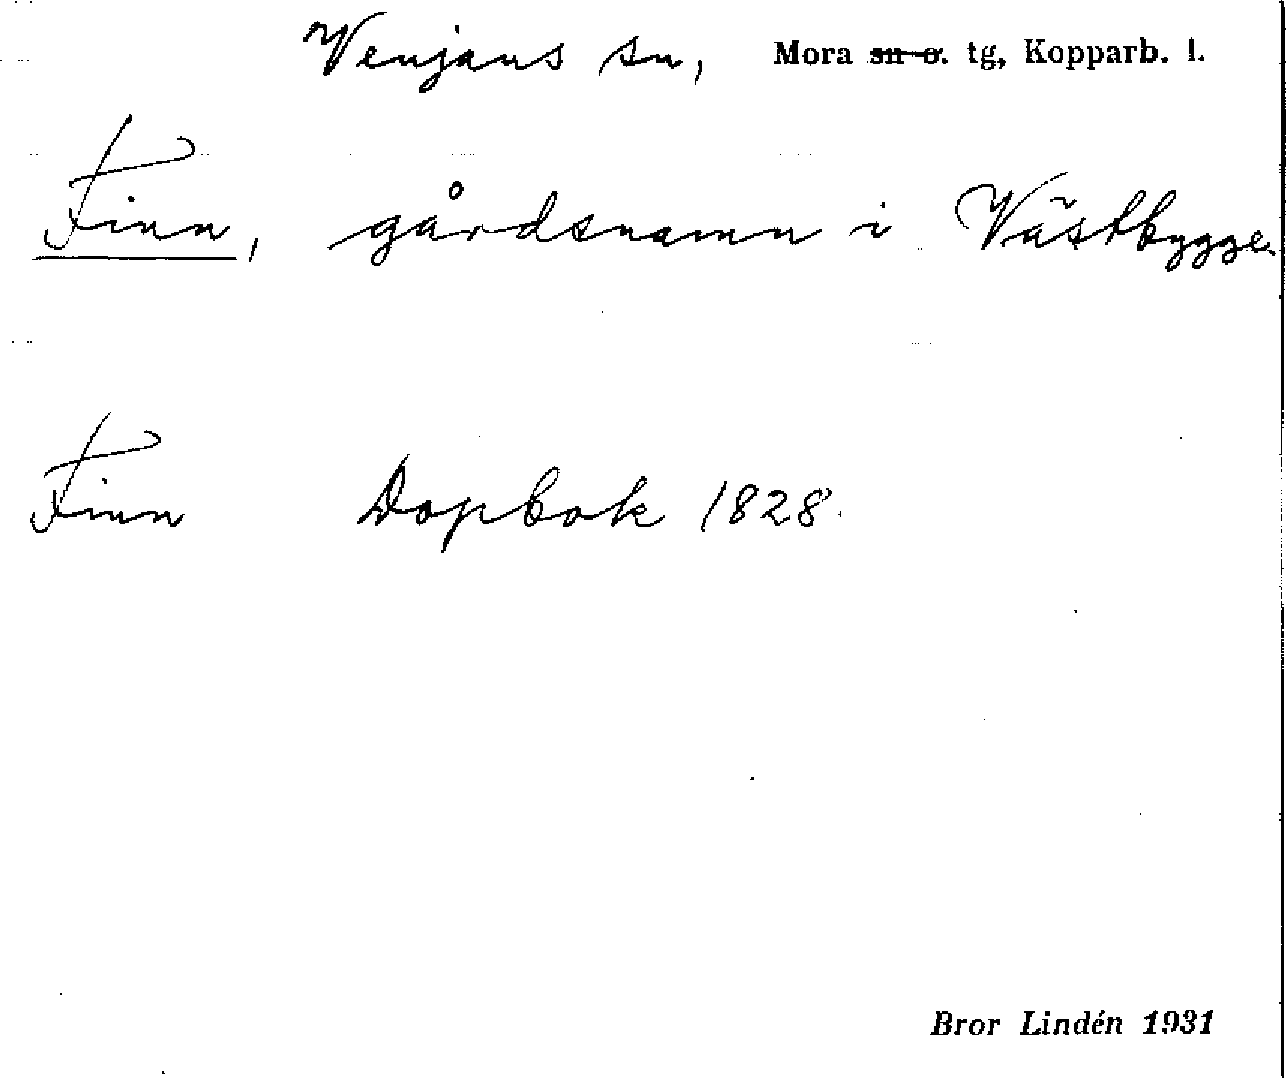 Venjans sn, Mora sn o. tg, Kopparb. l.
Finn, gårdsnamn i Västbygge.
Finn Dopbok 1828.
Bror Lindén 1931